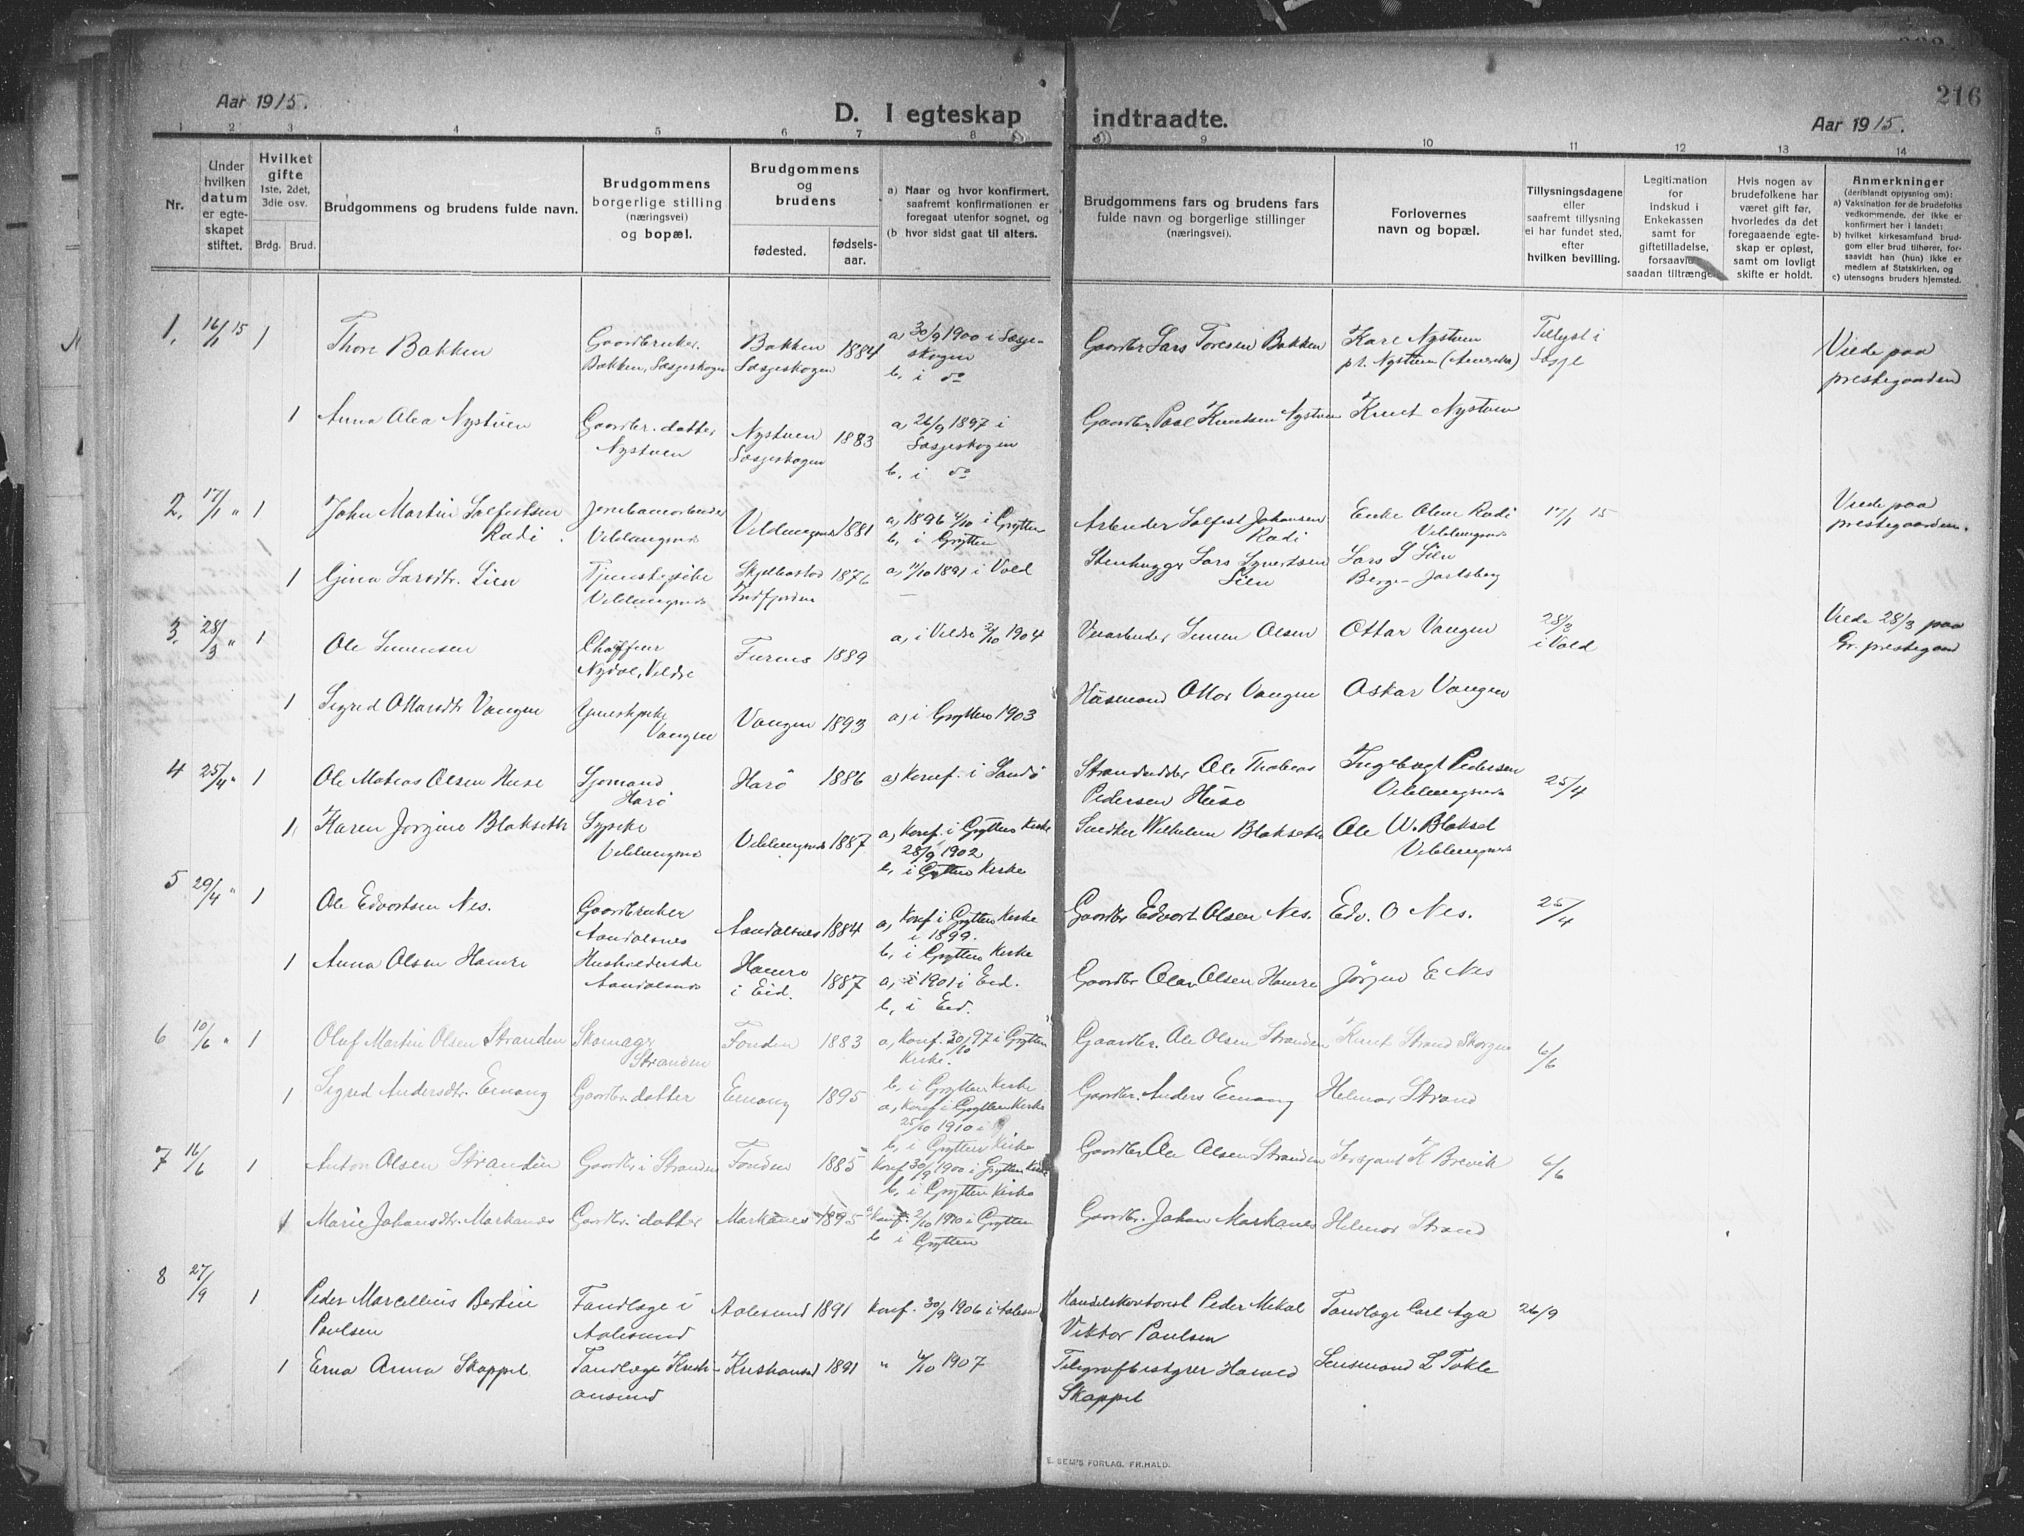 Aar 1915.
D. I egteskap indtraadte.
216
Aar 1915.
1 2 3 4 5 6 7 8 9 10 11 12 13 14
Nr.
Under hvilken datum er egteskapet stiftet.
Hvilket gifte
1ste, 2det, 3die osv.
Brdg. Brud.
Brudgommens og brudens fulde navn.
Brudgommens borgerlige stilling (næringsvei) og bopæl.
Brudgommens og brudens
fødested.
fødselsaar.
a) Naar og hvor konfirmert, saafremt konfirmationen er foregaat utenfor sognet, og
(b hvor sidst gaat til alters.
Brudgommens fars og brudens fars fulde navn og borgerlige stillinger (næringsvei).
Forlovernes navn og bopæl.
Tillysningsdagene eller saafremt tillysning ei har fundet sted, efter hvilken bevilling.
Legitimation for indskud i Enkekassen samt for giftetilladelse, forsaavidt saadan tiltrænges
Hvis nogen av brudefolkene har været gift før, hvorledes da det foregaaende egteskap er opløst, samt om lovligt skifte er holdt.
Anmerkninger
(deriblandt oplysning om):
a) Vaksination for de brudefolks vedkommende, der ikke er konfirmert her i landet:
b) hvilket kirkesamfund brudgom eller brud tilhører, forsaavidt han (hun) ikke er medlem af Statskirken, og
c) utensogns bruders hjemsted.
1. 16/1 15 1 Thore Bakken Gaardbruker. Bakken 1884 a, 30/9 1900 i Sæsjeskogen Gaardbr Lars Toresen Bakken Kare Nystuen Tillyst i Viede paa
Bakken, Sæsjeskogen Sæsjeskogen b, i do pt. Nystuen (Amerika) prestegaarden
1 Anna Olea Nystuen Gaardbr. datter Nystuen 1883 a, 26/9 1897 i Gaardbr. Paal Knutsen Nystuen Knut Nystuen
Nystuen Sæsjeskogen Sæsjeskogen
b, i do
2. 17/1 " 1 John Martin Salfestsen Jernbanearbeider Veblungsnes 1881 a, 1896 4/10 i Grytten Arbeider Salfest Johansen Enke Oline Rødi 17/1 15 Viede paa
Rødi. Veblungsnes b, i Grytten Rødi Veblungsnes prestegaarden.
1 Gina Larsdtr. Lien Tjenestepike Skjelbostad 1876 a, 11/10 1891 i Vold Stenhugger Lars Syvertsen Lars S Lien
Veblungsnes Indfjorden Lien Berge - Jarlsberg
3. 28/3 " 1 Ole Simensen Chaffeur Furnes 1889 a, i Veldre 2/10 1904 Veiarbeider Simen Olsen Ottar Vangen 28/3 Viede 28/3 paa
Nydal, Veldre i Vold Gr. prestegaard
1 Sigrid Ottarsdtr Vangen Tjenestepike Vangen 1893 a, i Grytten 1903 Husmand Ottar Vangen Oskar Vangen
Vangen
4 25/4 " 1 Ole Matias Olsen Huse Sjomand Harö 1886 a, Konf. i Sandö Strandsidder Ole Thobias Ingeborgt Pedersen 25/4
Harø Pedersen Huse Veblungsnes
1. Karen Jørgine Blakseth Sypike Veblungsnes 1887 a, Konf. i Grytten Kirke Snedker Wilhelm Blakseth Ole W. Blakset
Veblungsnes 28/9 1902 Veblungsnes
b, i Grytten Kirke
5 29/4 " 1 Ole Edvartsen Nes. Gaardbruker Aandalsnes 1884 a, Konf. i Grytten Kirke Gaardbr Edvart Olsen Nes. Edv. O Nes. 25/4
Aandalsnes i 1899.
b, i Grytten Kirke
1 Anna Olsen Hamre Husholderske Hamre 1887 a, i 1901 i Eid. Gaardbr Olav Olsen Hamre Jørgen E Nes
Aandalsnes i Eid. b, i Eid.
6 10/6 " 1 Oluf Martin Olsen Stranden Skomager Fonden 1883 a, Konf. 30/10 97 i Grytten Gaardbr. Ole Olsen Stranden Knut Strand Skorgen 6/6
Stranden Kirke.
b, i Grytten Kirke
1 Sigrid Andersdtr. Ernang Gaardbr. datter Ernang 1895 a, Konf. i Grytten Kirke Gaardbr. Anders Ernang Helmer Strand
25/10 1910
b, i Grytten Kirke
7 16/6 1 Anton Olsen Stranden Gaardbr. i Stranden Fonden 1885 Konf. 30/9 1900 i Grytten Kirke Gaardbr Ole Olsen Stranden Sersjant K Brevik 6/6
b, i Grytten Kirke
1 Marie Johansdtr. Markanes Gaardbr. datter Markanes 1895 a, Konf. 2/10 1910 i Grytten Gaardbr. Johan Markanes Helmer Strand
b i Grytten
8 27/9 1 Peder Marcellius Bertin Tandlæge i Aalesund 1891 Konf. 30/9 1906 i Aalesund Handelskontorist Peder Mikal Tandlæge Carl Aga 26/9
Paulsen Aalesund Viktor Paulsen
1 Erna Anna Skappel Tandlæge Krist- Kristiansund 1891 " 6/10 1907 Telegrafbestyrer Harald Lensmand L Tokle
ansund Skappel
E. SEM'S FORLAG, FR.HALD.